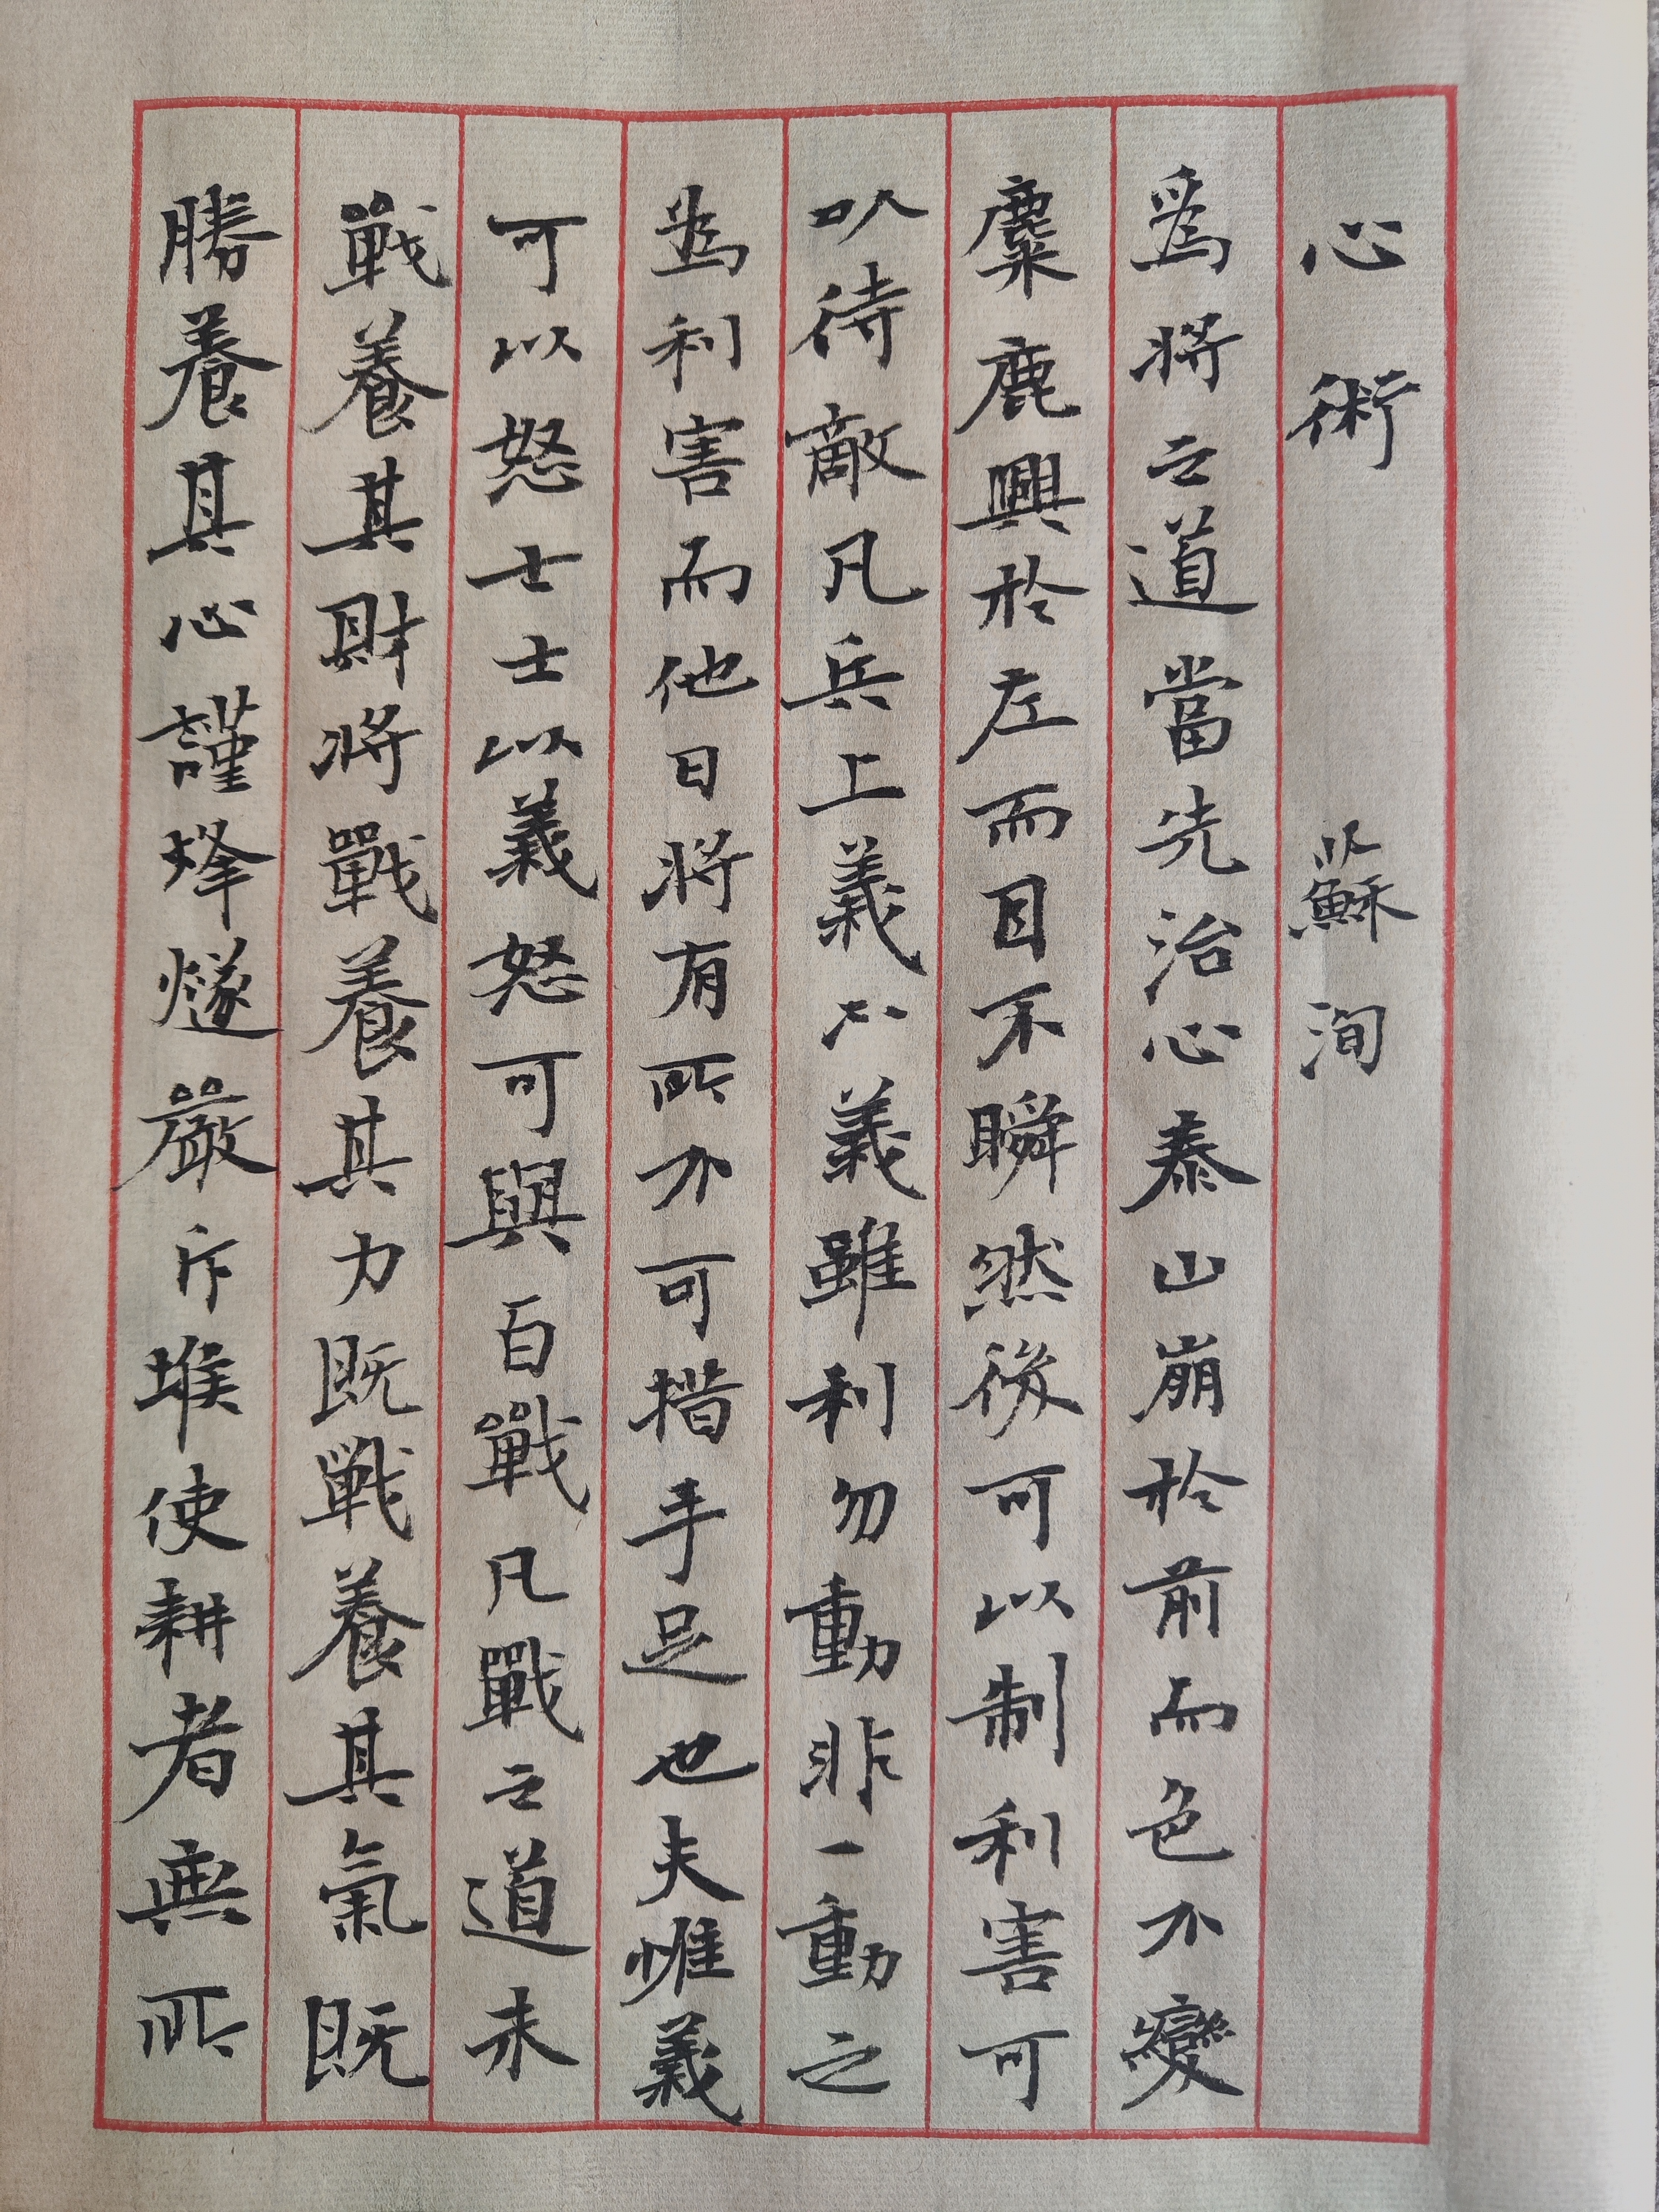 心術 蘇洵
爲將之道當先治心泰山崩於前而色不變
麋鹿興於左而目不瞬然後可以制利害可
以待敵凡兵上義不義雖利勿動非一動之
為利害而他日將有所不可措手足也夫惟義
可以怒士士以義怒可與百戰凡戰之道未
戰養其財將戰養其力既戰養其氣既
勝養其心謹烽燧嚴斥堠使耕者無所